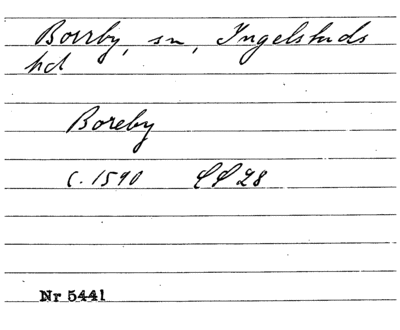 Borrby, sn, Ingelstads
hd
Boreby
c. 1590 28
Nr 5441